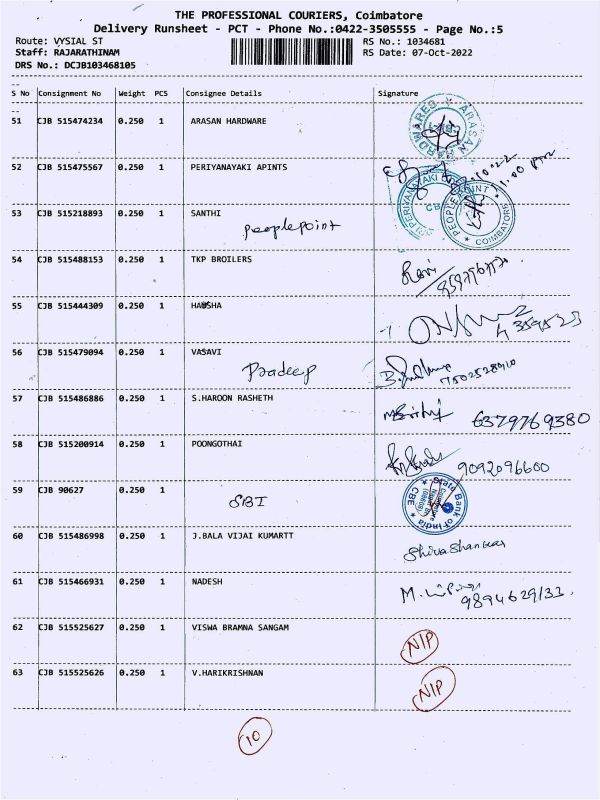 THE PROFESSIONAL COURIERS, Coimbatore
Delivery Runsheet - PCT - Phone No.:0422-3505555 - Page No.:5
Route: VYSIAL ST RS No.: 1034681
Staff: RAJARATHINAM RS Date: 07-Oct-2022
DRS No.: DCJB103468105
S No Consignment No Weight PCS Consignee Details Signature
51 CJB 515474234 0.250 1 ARASAN HARDWARE
52 CJB 515475567 0.250 1 PERIYANAYAKI APINTS
1.00 pm
53 CJB 515218893 0.250 1 SANTHI
peoplepoint
PEOPLE POINT COIMBATORE
54 CJB 515488153 0.250 1 TKP BROILERS
Ravi
55 CJB 515444309 0.250 1 HARSHA
56 CJB 515479094 0.250 1 VASAVI
Pradeep
7502528910
57 CJB 515486886 0.250 1 S.HAROON RASHETH
6379769380
58 CJB 515200914 0.250 1 POONGOTHAI
9092096600
59 CJB 90627 0.250 1
SBI
State Bank of India CBE
60 CJB 515486998 0.250 1 J.BALA VIJAI KUMARTT
Shiva Shankar
61 CJB 515466931 0.250 1 NADESH
9894629133.
62 CJB 515525627 0.250 1 VISWA BRAMNA SANGAM
NIP
63 CJB 515525626 0.250 1 V.HARIKRISHNAN
NIP
10